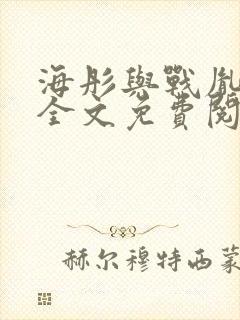 海彤與戰胤
全文免費閱
赫尔穆特西蒙